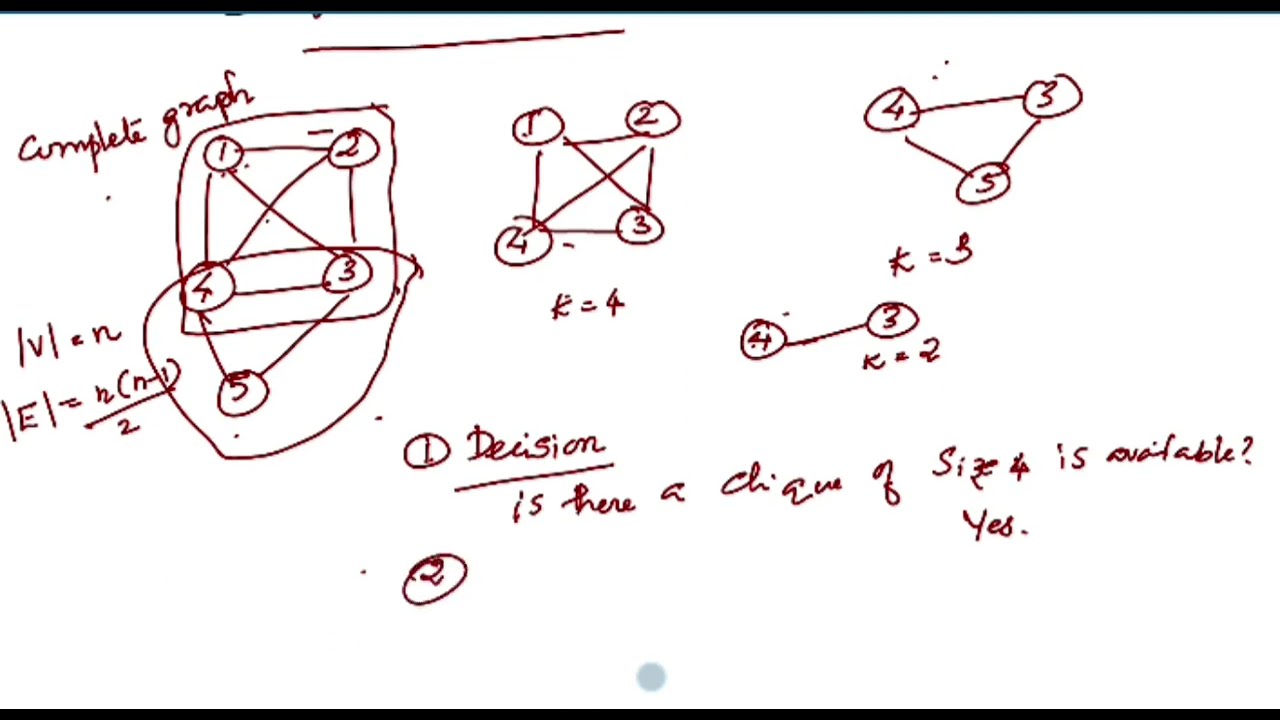 Complete graph
1 2
4 3
5
|V| = n
|E| = n(n-1)/2
1 2
4 3
K = 4
4 3
5
K = 3
4 3
K = 2
① Decision
is there a clique of Size 4 is available?
Yes.
②